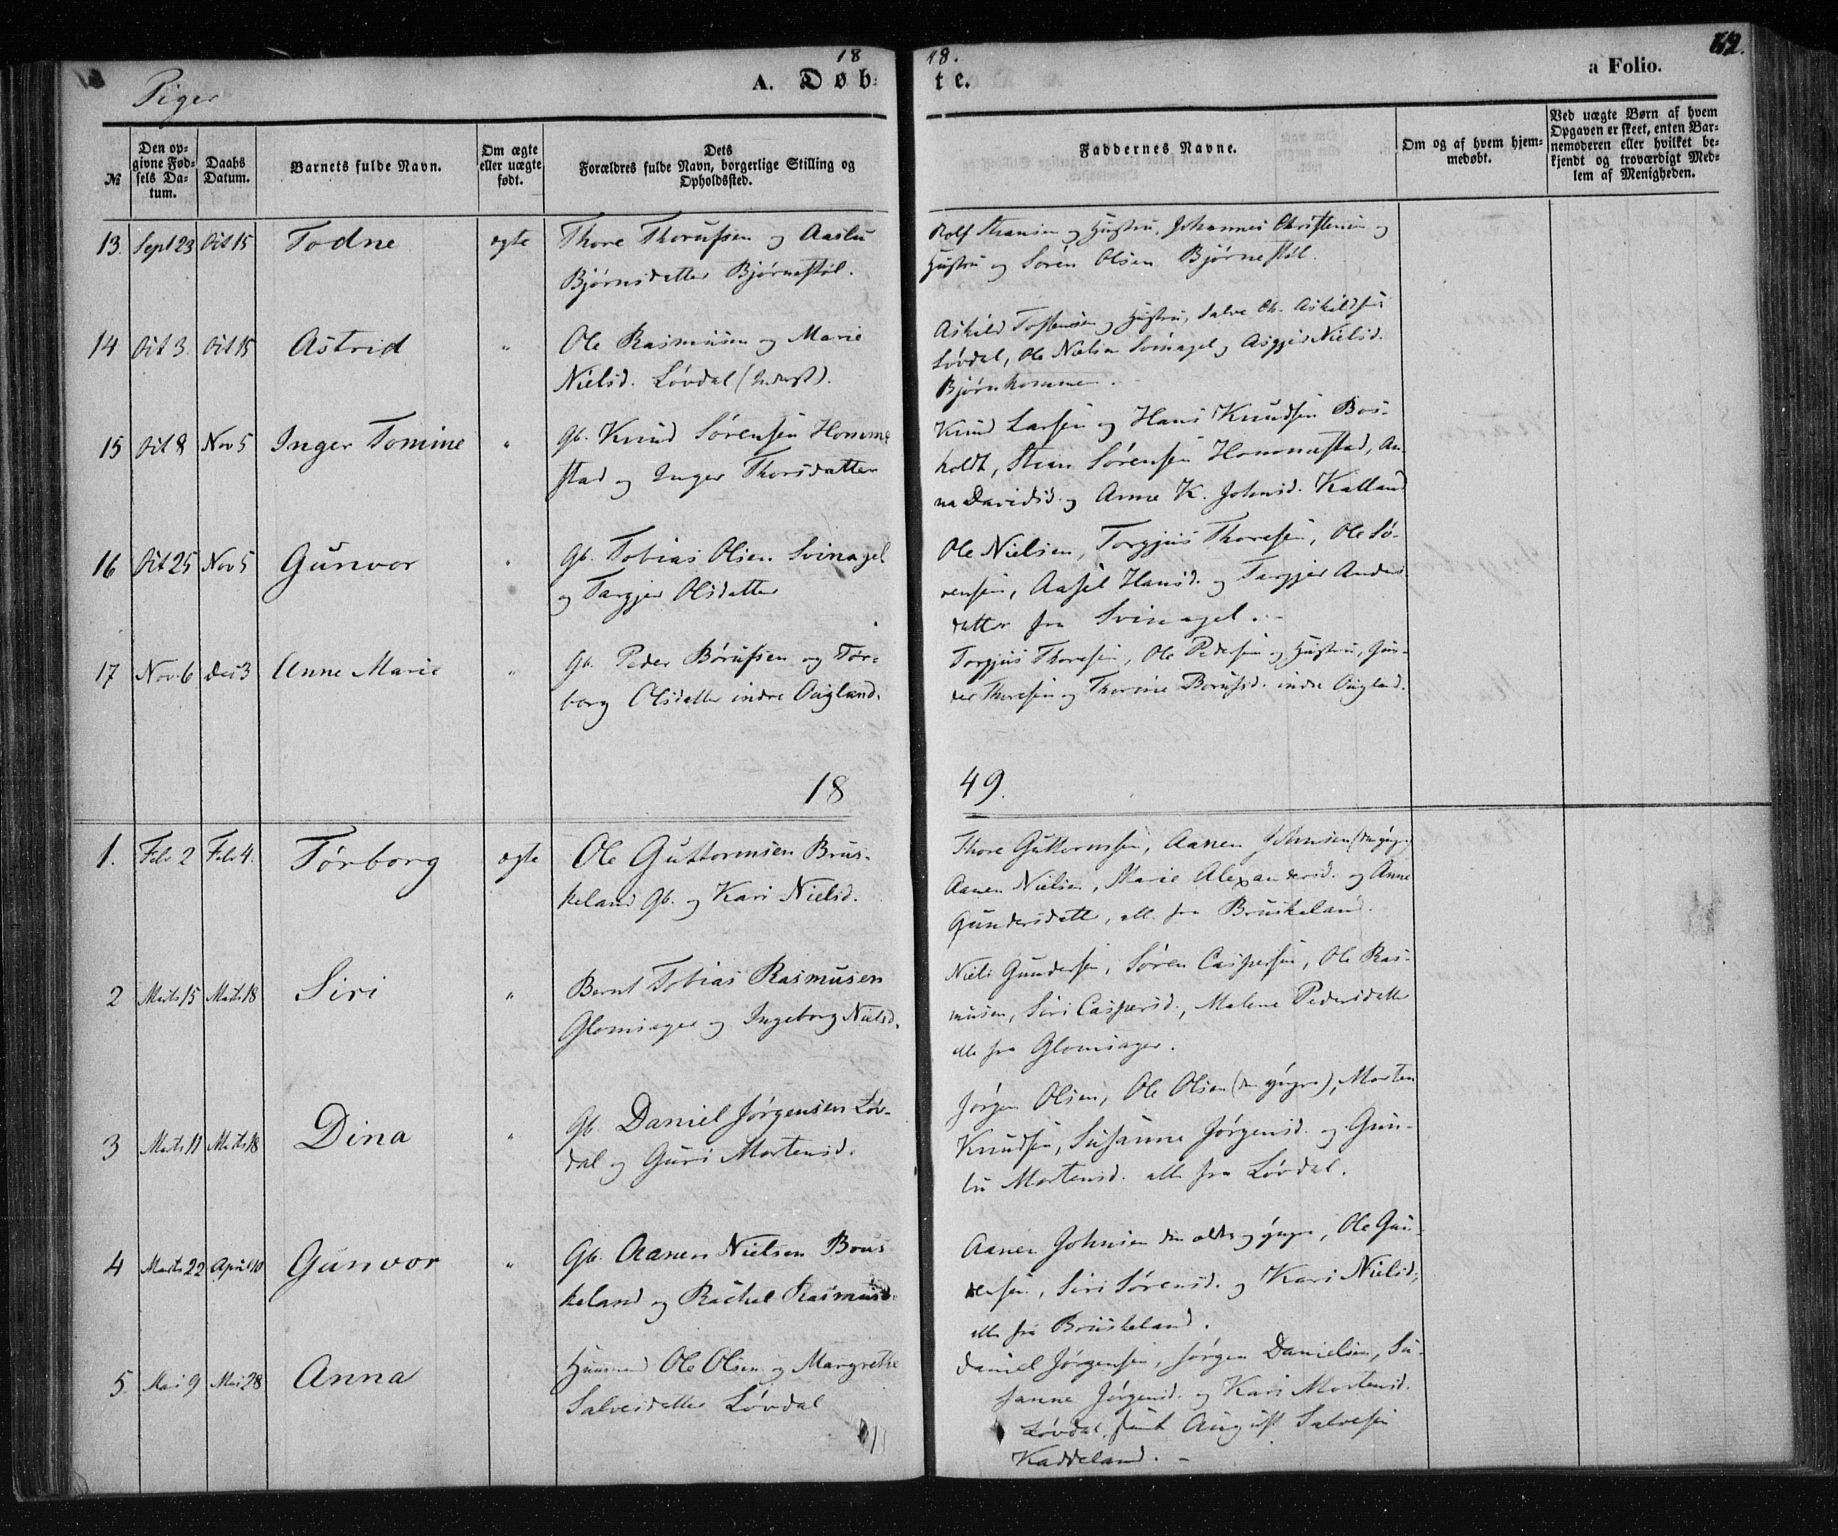 Piger
18 48.
A. Døb-te.
a Folio.
62.
№
Den opgivne Fødsels Datum.
Daabs Datum.
Barnets fulde Navn.
Om ægte eller uægte født.
Dets Forældres fulde Navn, borgerlige Stilling og Opholdssted.
Faddernes Navne.
Om og af hvem hjemmedøbt.
Ved uægte Børn af hvem Opgaven er skeet, enten Barnemoderen eller hvilket bekjendt og troværdigt Medlem af Menigheden.
13. Sept 23 Oct 15 Todne ægte
Thore Thorussen og Aaslu
Bjørnsdatter Bjørnestøl.
Rolf Stiansen og Hustru, Johannes Christensen og
Hustru og Søren Olsen Bjørnestøl.
14 Oct 3. Oct 15 Astrid "
Ole Rasmusen og Marie
Nielsd. Løvdal (Inderst).
Askild Tostensen og Hustru, Salve Askildsen
Løvdal, Ole Nielsen Svinagel og Nielsd.
Bjørnkommen.
15 Oct 8 Nov 5 Inger Tomine "
Gb. Knud Sørensen Homme
stad og Inger Thorsdatter
Knud Larsen og Hans Knudsen Bos-
holdt, Stian Sørensen Hommestad, An-
na Davidsd. og Anne K. Johnsd. Kalland
16 Oct 25 Nov 5 Gunvor "
Gb. Tobias Olsen Svinagel
og Targjer Olsdatter
Ole Nielsen, Torgjus Thoresen, Ole Sø-
rensen, Aasel Hansd. og Targjer Anders
datter fra Svinagel.
17 Nov. 6 Dec 3 Anne Marie "
Gb. Peder Børufsen og Tør-
borg Olsdatter indre Aagland.
Torgjus Thoresen, Ole Pedersen og Hustru, Gun-
der Thoresen og Thorine Borufsd. indre Aagland.
18 49.
1. Feb 2 Feb 4. Tørborg ægte
Ole Guttormsen Brus-
keland Gb. og Kari Nielsd.
Thore Guttormsen, Aanen Johnsen (den yngre)
Aanen Nielsen, Marie Alexandersd. og Anne
Gundersdatte, alle fra Bruskeland.
2 Marts 15 Marts 18 Siri "
Bernt Tobias Rasmusen
Glomsager og Ingeborg Nielsd.
Niels Gundersen, Søren Caspersen, Ole Ras-
musen, Siri Caspersd., Malene Pedersdatte
alle fra Glomsager.
3 Marts 11 Marts 18 Dina "
Gb. Daniel Jørgensen Løv-
dal og Guri Mortensd.
Jørgen Olsen, Ole Olsen (den yngre), Morten
Knudsen, Susanne Jørgensd. og Gun-
lu Mortensd. alle fra Løvdal.
4 Marts 22 April 10 Gunvor "
Gb. Aanen Nielsen Brus
keland og Rachel Rasmusd.
Aanen Johnsen den ældre og yngre, Ole Gun-
dersen, Siri Sørensd. og Kari Nielsd.,
alle fra Bruskeland.
5 Mai 9 Mai 28 Anna
Huusmand Ole Olsen og Margrethe
Salvesdatter Løvdal
Daniel Jørgensen, Jørgen Danielsen, Su-
sanne Jørgensd. og Kari Mortensd.
Løvdal, samt August Salvesen
Kaddeland.